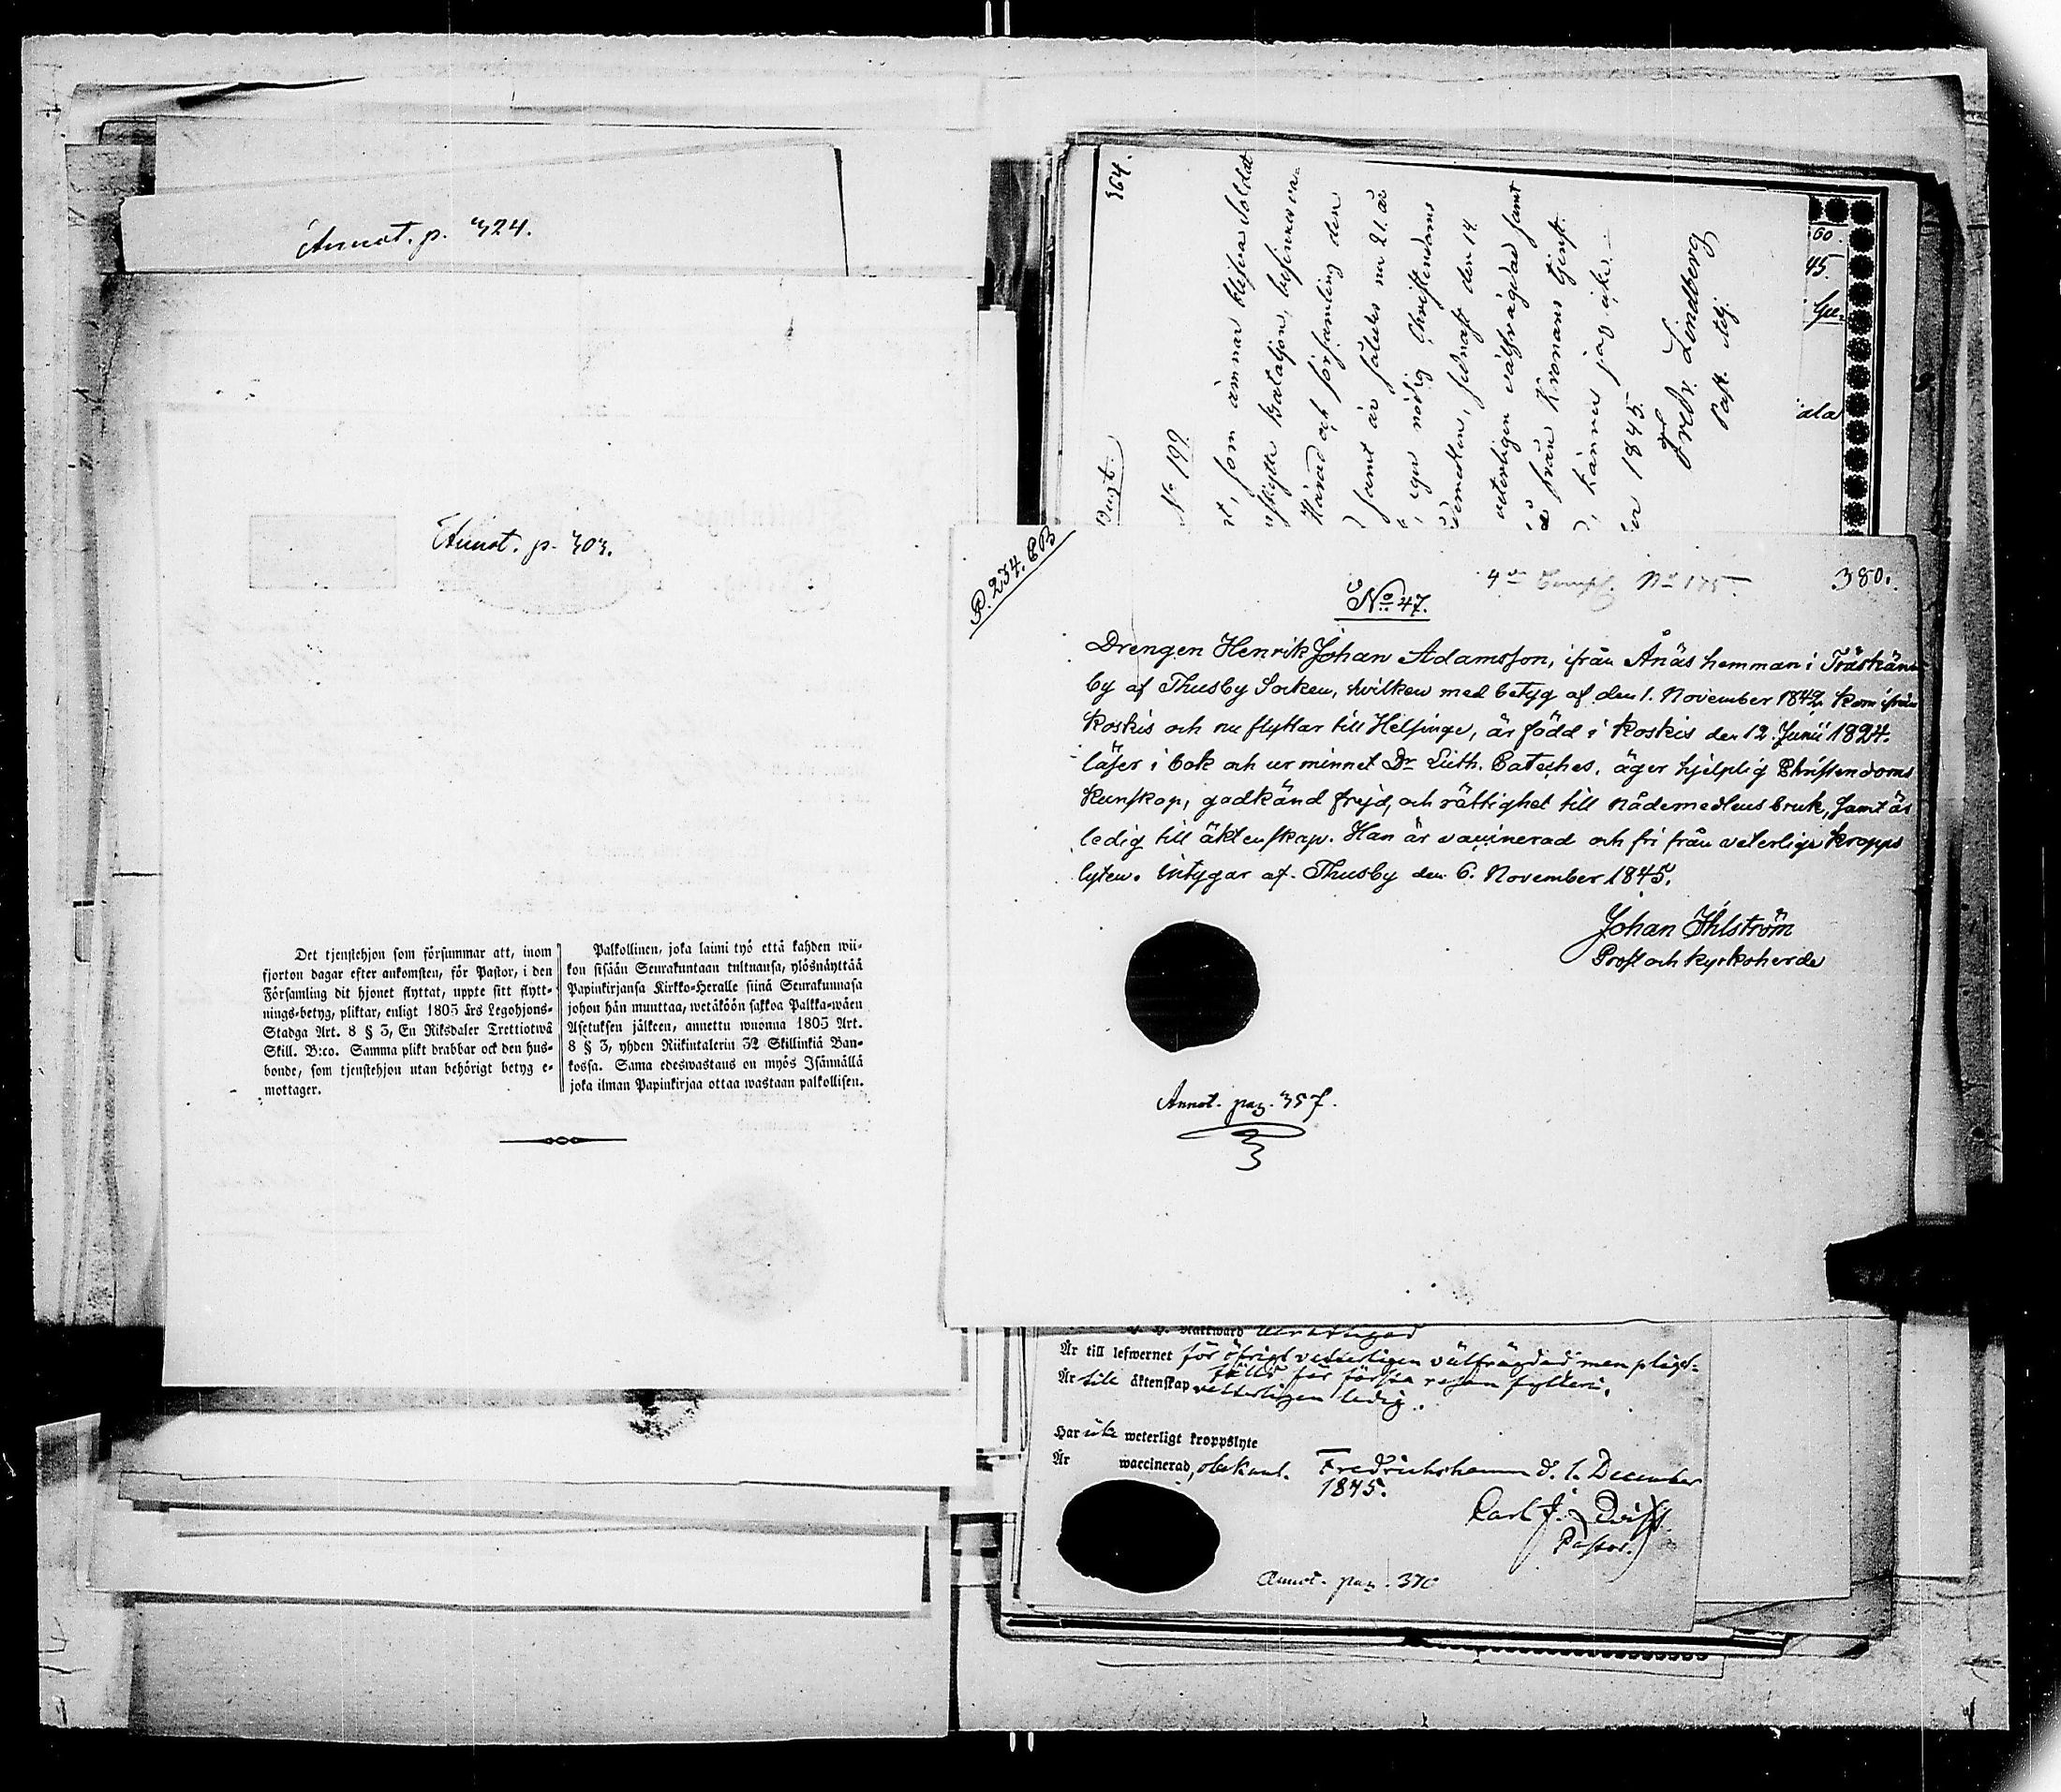 Annot. p. 324.
Annot. p. 303.
Det tjenstehjon som försummar att, inom
fjorton dagar efter ankomsten, för Pastor, i den
Församling dit hjonet flyttat, uppte sitt flytt-
nings-betyg, pliktar, enligt 1805 års Legohjons-
Stadga Art. 8 § 3, En Riksdaler Trettiotwå
Skill. B:co. Samma plikt drabbar ock den hus-
bonde, som tjenstehjon utan behörigt betyg e-
mottager.
Palkollinen, joka laimi lyö että kahden wii-
kon sisään Seurakuntaan tultuansa, ylösnäyttää
Papinkirjansa Kirkko-Heralle siinä Seurakunnasa
johon hän muuttaa, wetäköön sakkoa Palkka-wäen
Asetuksen jälkeen, annettu wuonna 1805 Art.
8 § 3, yhden Riikintalerin 32 Skillinkiä Ban-
kossa. Sama edeswastaus on myös Isännällä
joka ilman Papinkirjaa ottaa wastaan palkollisen.
364.
No 199
, som ämnar blifva Soldat
Bataljon, befinnes va
Härad och församling den
samt är således nu 21 år
, eger nödig Christendoms
, sednast den 14
veterligen välfrägdad samt
från Kronans tjenst
, känner jag icke.
1845.
Fredr. Lindberg
Past. Adj.
60.
45.
ala
P. 234. CB
No 47.
No 175
380.
Drengen Henrik Johan Adamsson, ifrån Ånäs hemman i Träskän
by af Thusby Socken, hvilken med betyg af den 1. November 1842 kom ifrån
Koskis och nu flyttar till Helsinge, är född i Koskis den 12. Junii 1824.
läser i bok och ur minnet Dr Luth. Cateches, äger hjelplig Christendoms
kunskap, godkänd frejd, och rättighet till nådemedlens bruk, samt är
ledig till äktenskap. Han är vaccinerad och fri från veterliga kropps
lyten. Intygar af Thusby den 6. November 1845.
Johan Ahlström
Prost och kyrkoherde
Annot. pag. 357.
Nattward
Är till lefwernet för öfrigt vetterligen välfrägdad men pligt-
fälld för första resan fylleri.
Är till äktenskap vetterligen ledig.
Har icke weterligt kroppslyte
Är waccinerad, obekant. Fredrichshamn d. 1. December
1845.
Carl J.
Pastor.
Annot. pag. 370